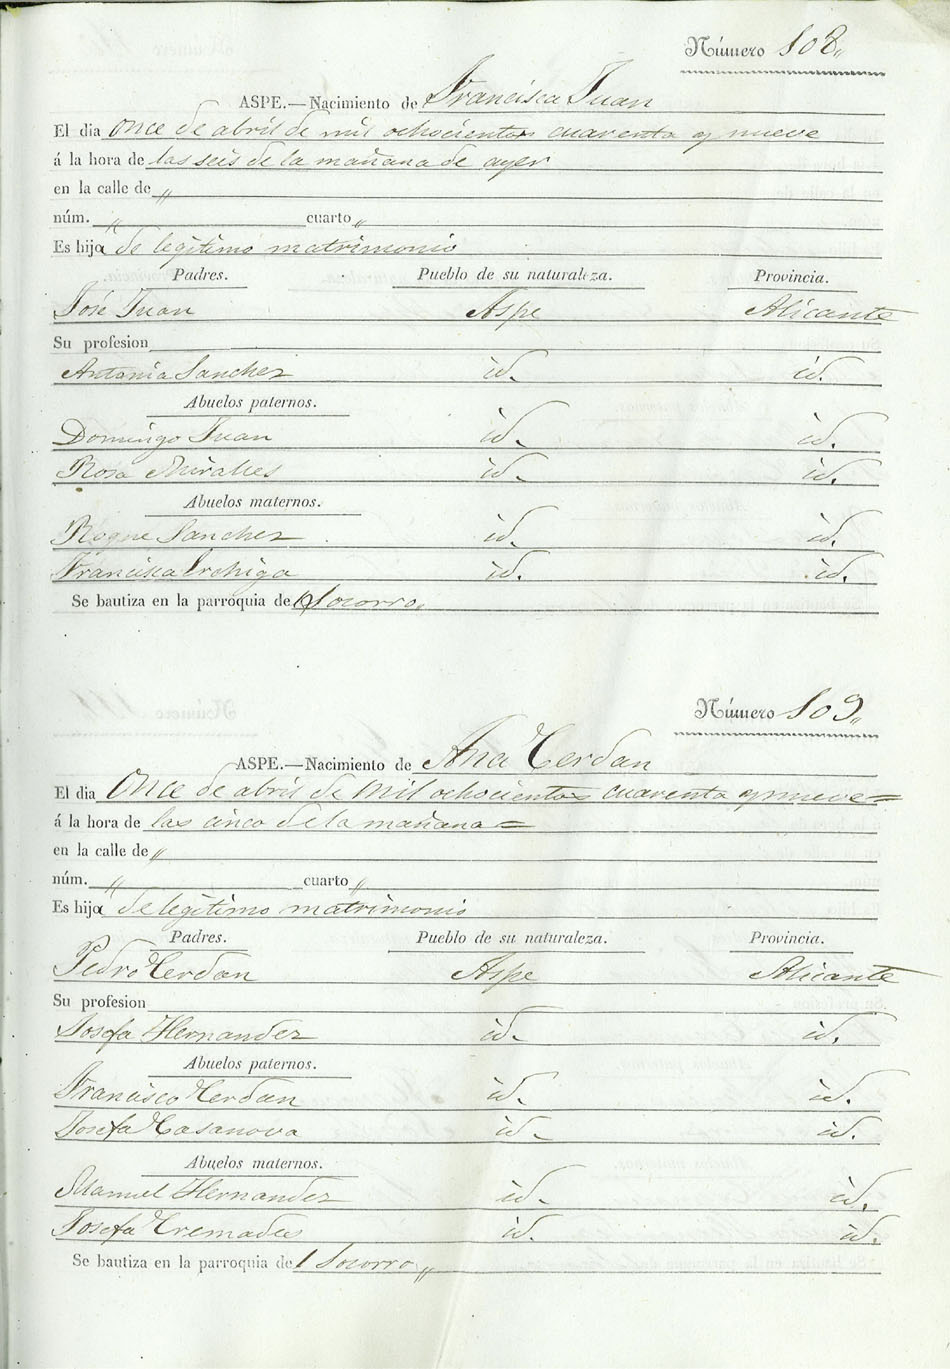 Número 108„
ASPE.—Nacimiento de Francisca Juan
El dia Once de abril de mil ochocientos cuarenta y nueve
á la hora de las seis de la mañana de ayer
en la calle de „
núm. „ cuarto „
Es hija de legitimo matrimonio
Padres. Pueblo de su naturaleza. Provincia.
José Juan Aspe Alicante
Su profesion
Antonia Sanchez id. id.
Abuelos paternos.
Domingo Juan id. id.
Rosa Miralles id. id.
Abuelos maternos.
Roque Sanchez id. id.
Francisca Urchiga id. id.
Se bautiza en la parroquia de l Socorro„
Número 109„
ASPE.—Nacimiento de Ana Cerdan
El dia Once de abril de mil ochocientos cuarenta y nueve=
á la hora de las cinco de la mañana=
en la calle de „
núm. „ cuarto „
Es hija de legitimo matrimonio
Padres. Pueblo de su naturaleza. Provincia.
Pedro Cerdan Aspe Alicante
Su profesion
Josefa Hernandez id. id.
Abuelos paternos.
Francisco Cerdan id. id.
Josefa Casanova id. id.
Abuelos maternos.
Manuel Hernandez id. id.
Josefa Cremades id. id.
Se bautiza en la parroquia de l Socorro„